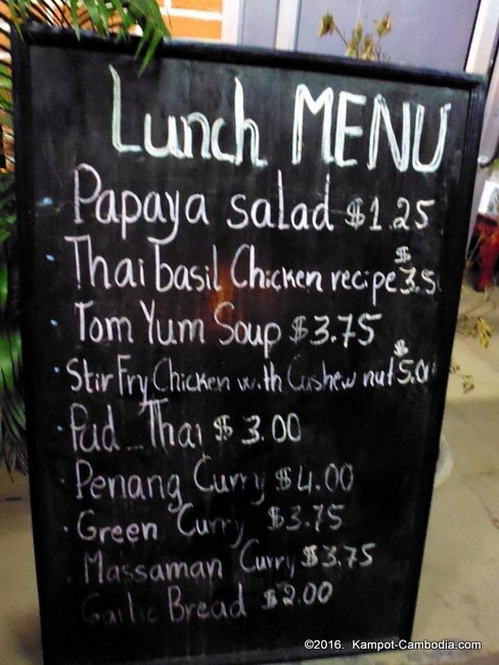 Lunch MENU
Papaya salad $1.25
Thai basil Chicken recipe $3.5
Tom Yum Soup $3.75
Stir Fry Chicken with Cashew nut $5.0
Pad - Thai $3.00
Penang Curry $4.00
Green Curry $3.75
Massaman Curry $3.75
Garlic Bread $2.00
©2016. Kampot-Cambodia.com